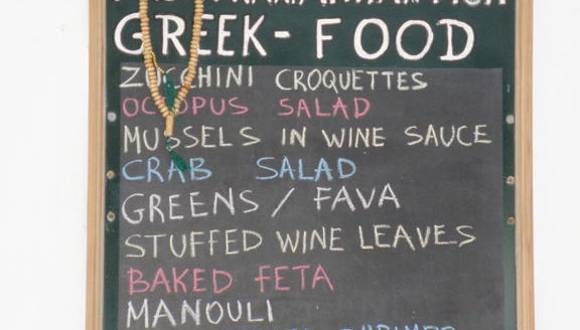 GREEK-FOOD
ZUCCHINI CROQUETTES
OCTOPUS SALAD
MUSSELS IN WINE SAUCE
CRAB SALAD
GREENS / FAVA
STUFFED WINE LEAVES
BAKED FETA
MANOULI